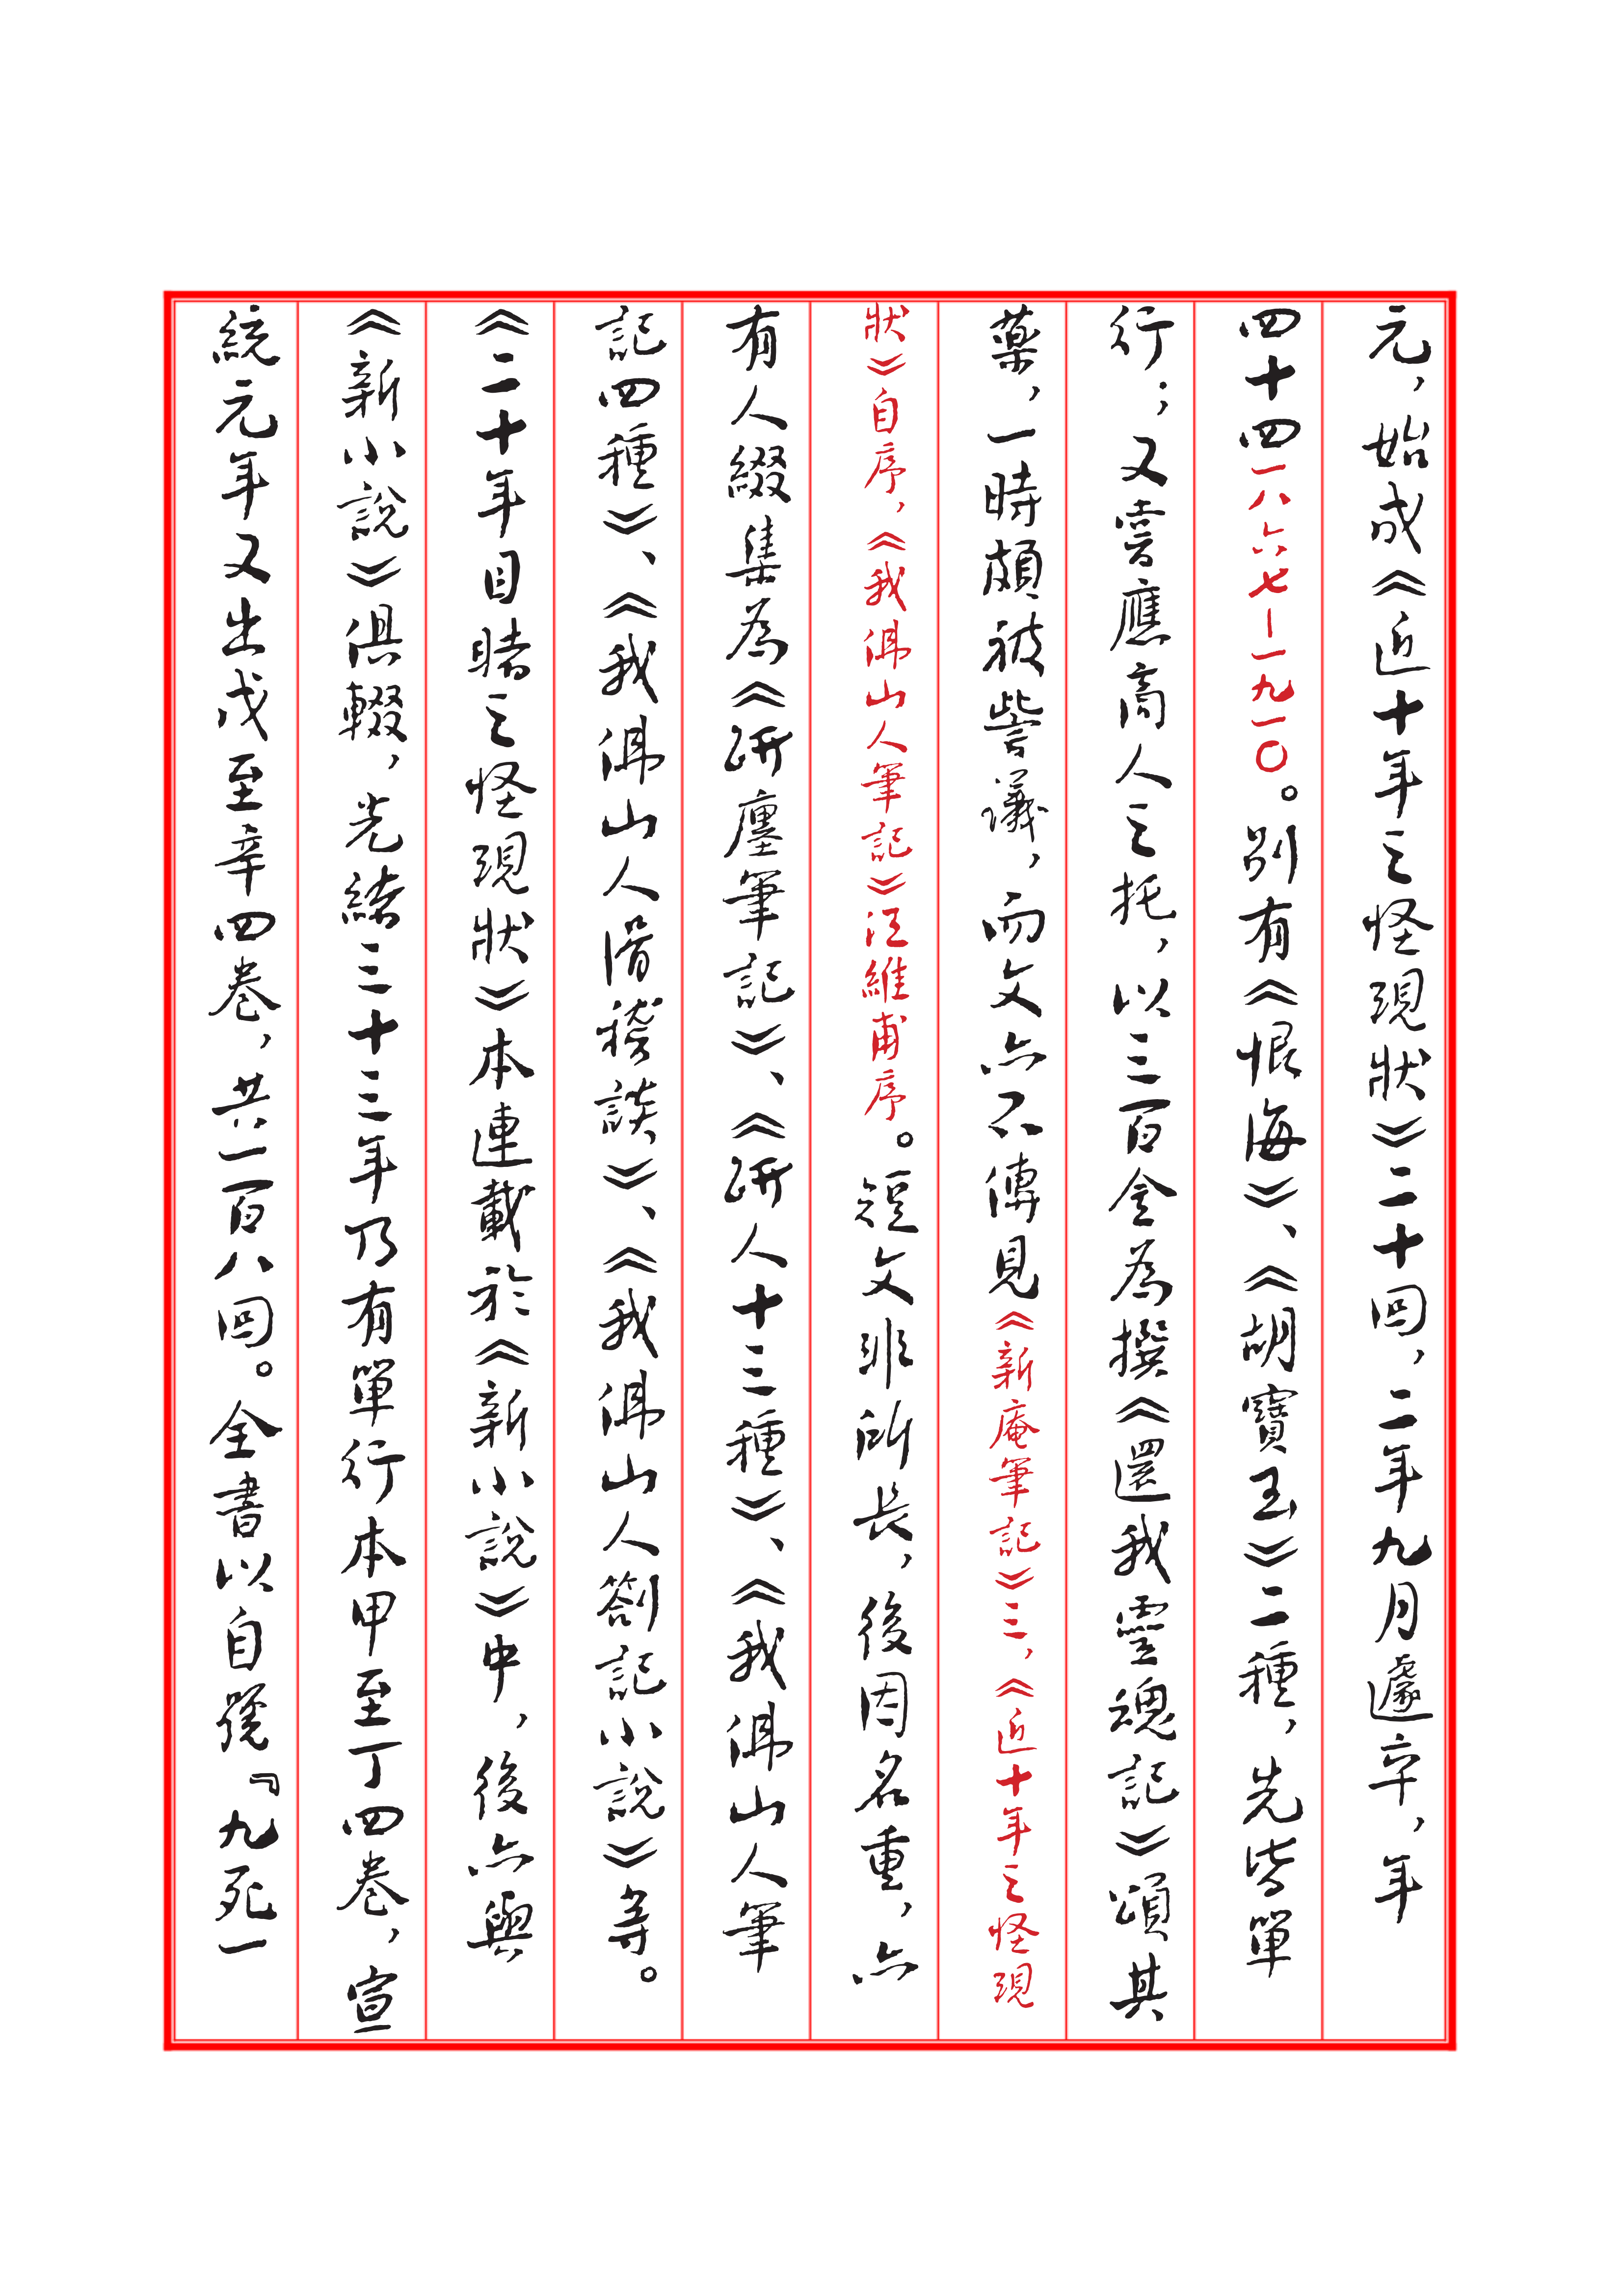 元，始成《近十年之怪現狀》二十回，二年九月遽卒，年
四十四一八六七－一九一〇。別有《恨海》、《胡寶玉》二種，先皆單
行；又嘗應商人之托，以三百金為撰《還我靈魂記》頌其
藥，一時頗被訾議，而文亦不傳見《新庵筆記》三，《近十年之怪現
狀》自序，《我佛山人筆記》汪維甫序。短文非所長，後因名重，亦
有人綴集為《趼廛筆記》、《趼人十三種》、《我佛山人筆
記四種》、《我佛山人滑稽談》、《我佛山人劄記小說》等。
《二十年目睹之怪現狀》本連載於《新小說》中，後亦與
《新小說》俱輟，光緒三十三年乃有單行本甲至丁四卷，宣
統元年又出戊至辛四卷，共一百八回。全書以自號『九死一